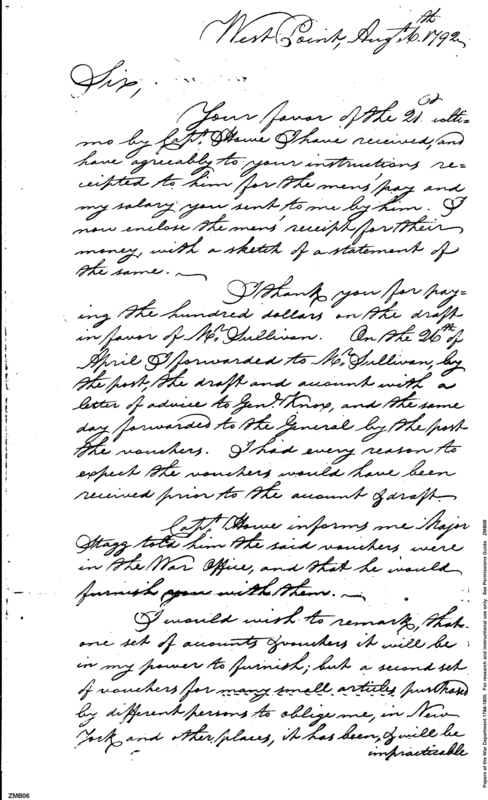 West Point, Augt 6.th 1792
Sir,
Your favor of the 21.st ulti=
mo by Capt. Howe I have received, and
have agreeably to your instructions re=
ceipted to him for the mens' pay and
my salary you sent to me by him. I
now enclose the mens' receipt for their
money, with a sketch of a statement of
the same.
I thank you for pay=
ing the hundred dollars on the draft
in favor of Mr. Sullivan. On the 26th of
April I forwarded to Mr. Sullivan, by
the post, the draft and account with a
letter of advice to Genl. Knox, and the same
day forwarded to the General by the post
the vouchers. I had every reason to
expect the vouchers would have been
received prior to the account & draft.
Capt. Howe informs me Major
Stagg told him the said vouchers were
in the War Office, and that he would
furnish you with them.
I would wish to remark, that
one set of accounts & vouchers it will be
in my power to furnish; but a second set
of vouchers for many small articles purchased
by different persons to oblige me, in New
York and other places, it has been, & will be
impracticable
ZMB06
Papers of the War Department 1784-1800. For research and instructional use only. See Permissions Guide. ZMB06